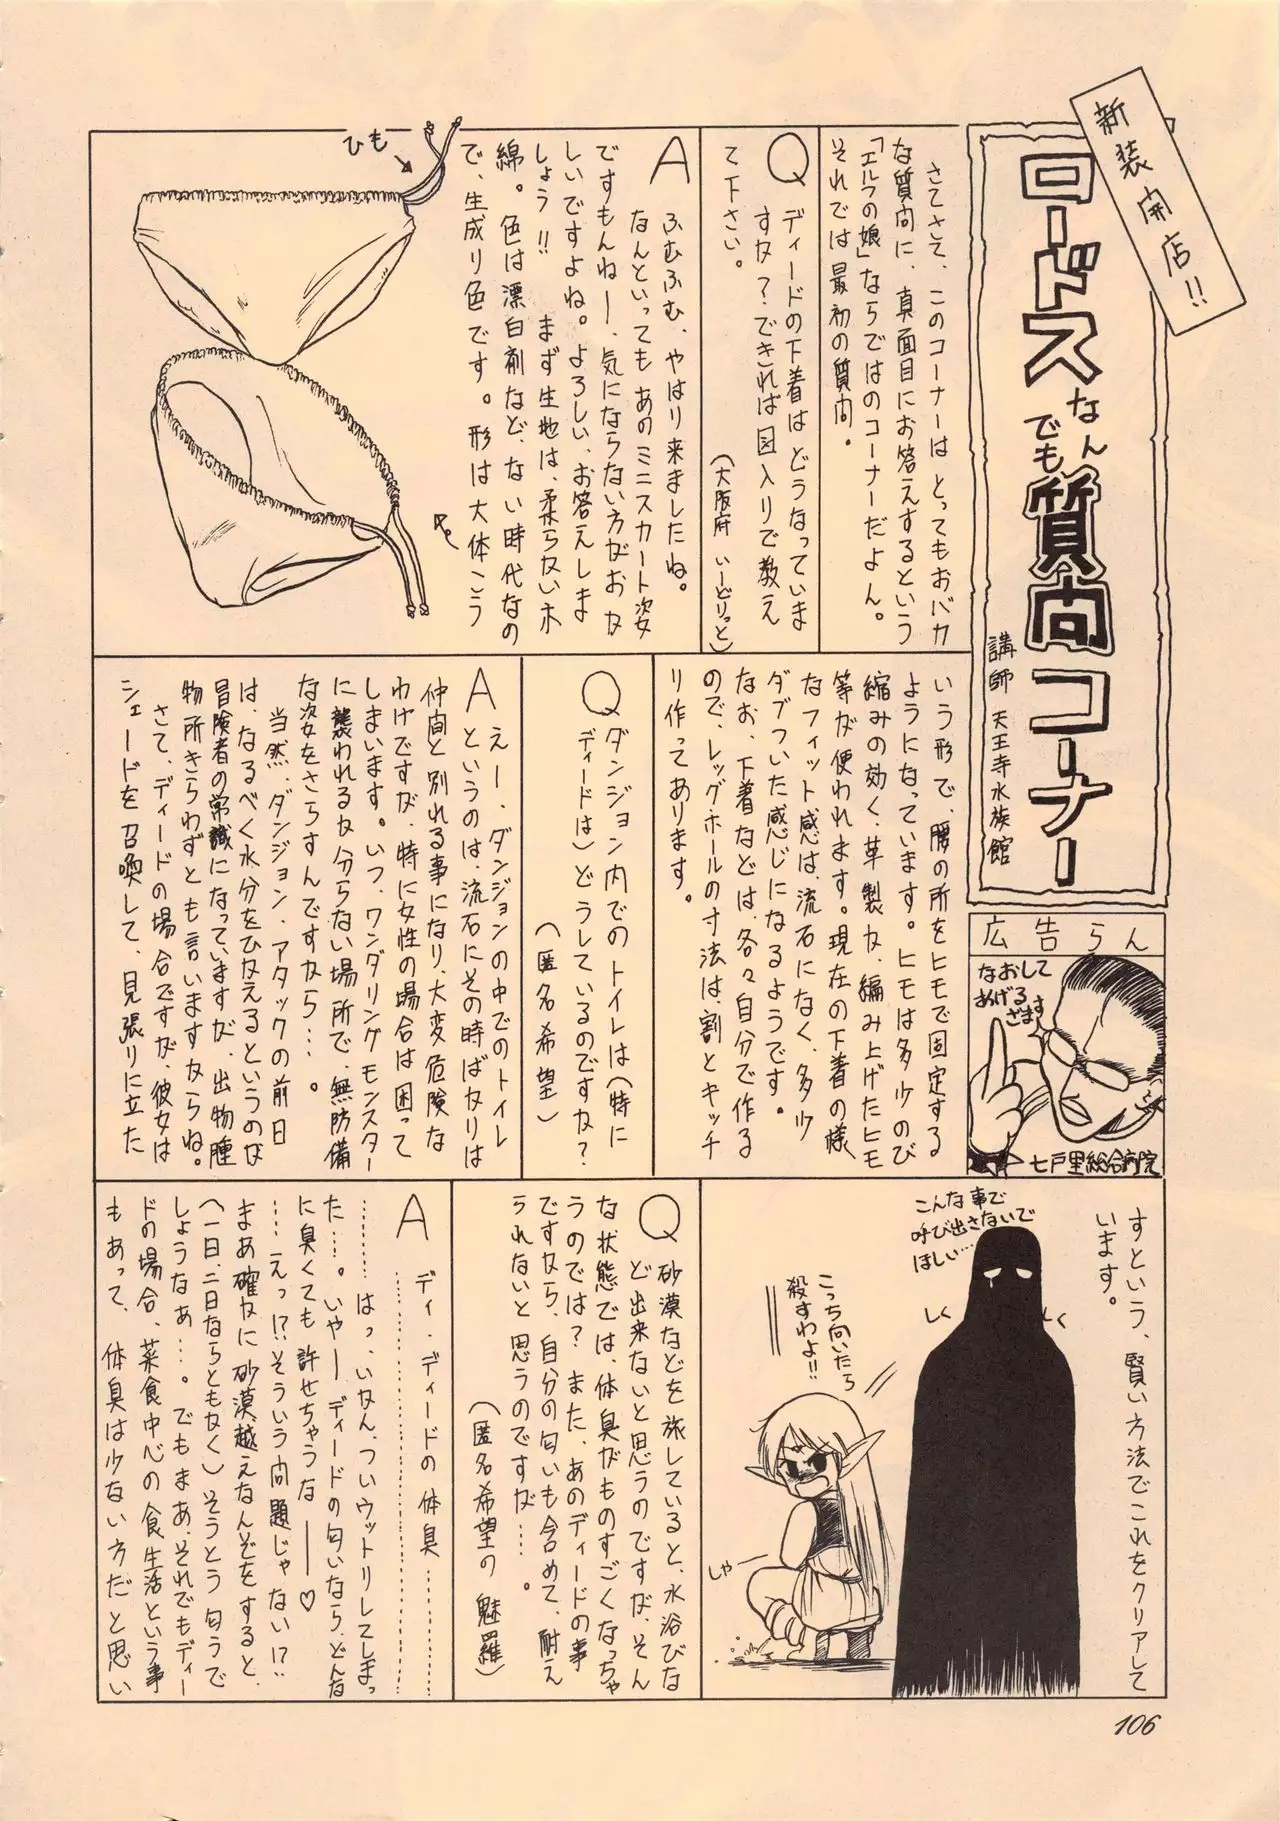 新装開店!!
ロードス
なん
でも
質問コーナー
講師 天王寺水族館
さてさて、このコーナーはとってもおバカ
な質問に、真面目にお答えするという
「エルフの娘」ならではのコーナーだよん。
それでは最初の質問。
Q ディードの下着はどうなっていま
すか?できれば図入りで教え
て下さい。
(大阪府 いーどりっと)
A ふむふむ、やはり来ましたね。
なんといってもあのミニスカート姿
ですもんねー、気にならない方がおか
しいですよね。よろしい、お答えしま
しょう!! まず生地は、柔らかいホ
綿。色は漂白剤など、ない時代なの
で、生成り色です。形は大体こう
ひも
いう形で、腰の所をヒモで固定する
ようになっています。ヒモは多少のび
縮みの効く、革製か、編み上げたヒモ
等が使われます。現在の下着の様
なフィット感は、流石になく、多少
ダブついた感じになるようです。
なお、下着などは、各々自分で作る
ので、レッグホールの寸法は、割とキッチ
リ作ってあります。
Q ダンジョン内でのトイレは(特に
ディードは)どうしているのですか?
(匿名希望)
A えー、ダンジョンの中でのトイレ
というのは、流石にその時ばかりは
仲間と別れる事になり、大変危険な
わけですが、特に女性の場合は困って
しまいます。いつ、ワンダリングモンスター
に襲われるか分らない場所で、無防備
な姿をさらすんですから…。
当然、ダンジョン・アタックの前日
は、なるべく水分をひかえるというのが
冒険者の常識になっていますが、出物腫
物所きらわずとも言いますからね。
さて、ディードの場合ですが、彼女は
シェードを召喚して、見張りに立た
広告らん
なおして
あげる
ざます
七戸里総合病院
すという、賢い方法でこれをクリアして
います。
こんな事で
呼び出さないで
ほしい…
しく
しく
こっち向いたら
殺すわよ!!
しゃー
Q 砂漠などを旅していると、水浴びな
ど出来ないと思うのですが、そん
な状態では、体臭がものすごくなっちゃ
うのでは?また、あのディードの事
ですから、自分の匂いも含めて、耐え
られないと思うのですが…。
(匿名希望の魅羅)
A ディ、ディードの体臭………
………はっ、いかん、ついウットリしてしまっ
た…。いやーディードの匂いなら、どんな
に臭くても許せちゃうな――♡
…えっ!?そういう問題じゃない!?
まあ確かに砂漠越えなんぞをすると、
(一日、二日ならともかく)そうとう匂うで
しょうなぁ…。でもまあ、それでもディー
ドの場合、菜食中心の食生活という事
もあって、体臭は少ない方だと思い
106